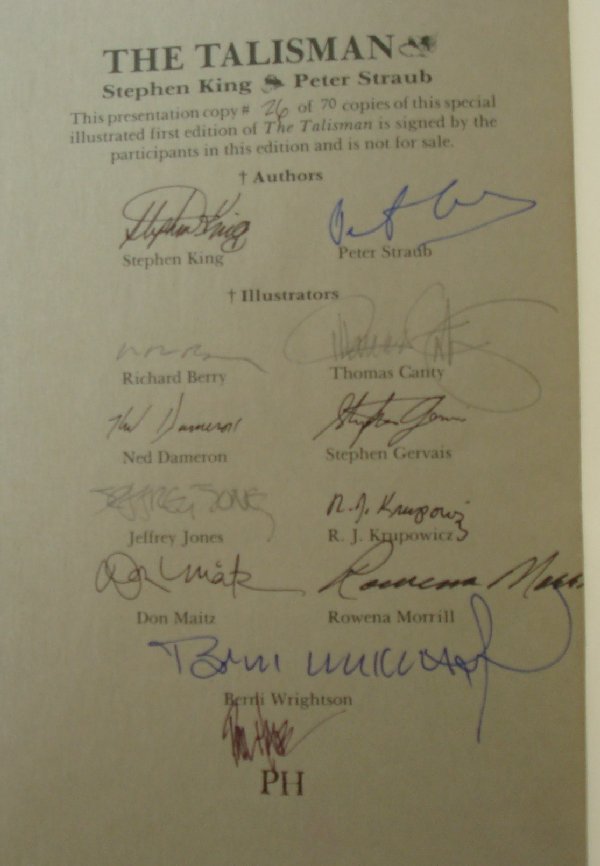 THE TALISMAN
Stephen King & Peter Straub
This presentation copy # 26 of 70 copies of this special
illustrated first edition of The Talisman is signed by the
participants in this edition and is not for sale.
† Authors
Stephen King
Stephen King Peter Straub
† Illustrators
Richard Berry Thomas Canty
Ned Dameron Stephen Gervais
Ned Dameron Stephen Gervais
Jeffrey Jones R. J. Krupowicz
Jeffrey Jones R. J. Krupowicz
Don Maitz Rowena Morrill
Don Maitz Rowena Morrill
Berni Wrightson
PH